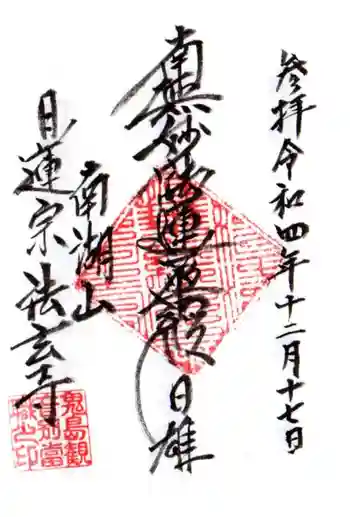 参拝令和四年十二月十七日
南無妙法蓮華経 日雄
南湖山
日蓮宗 法玄寺